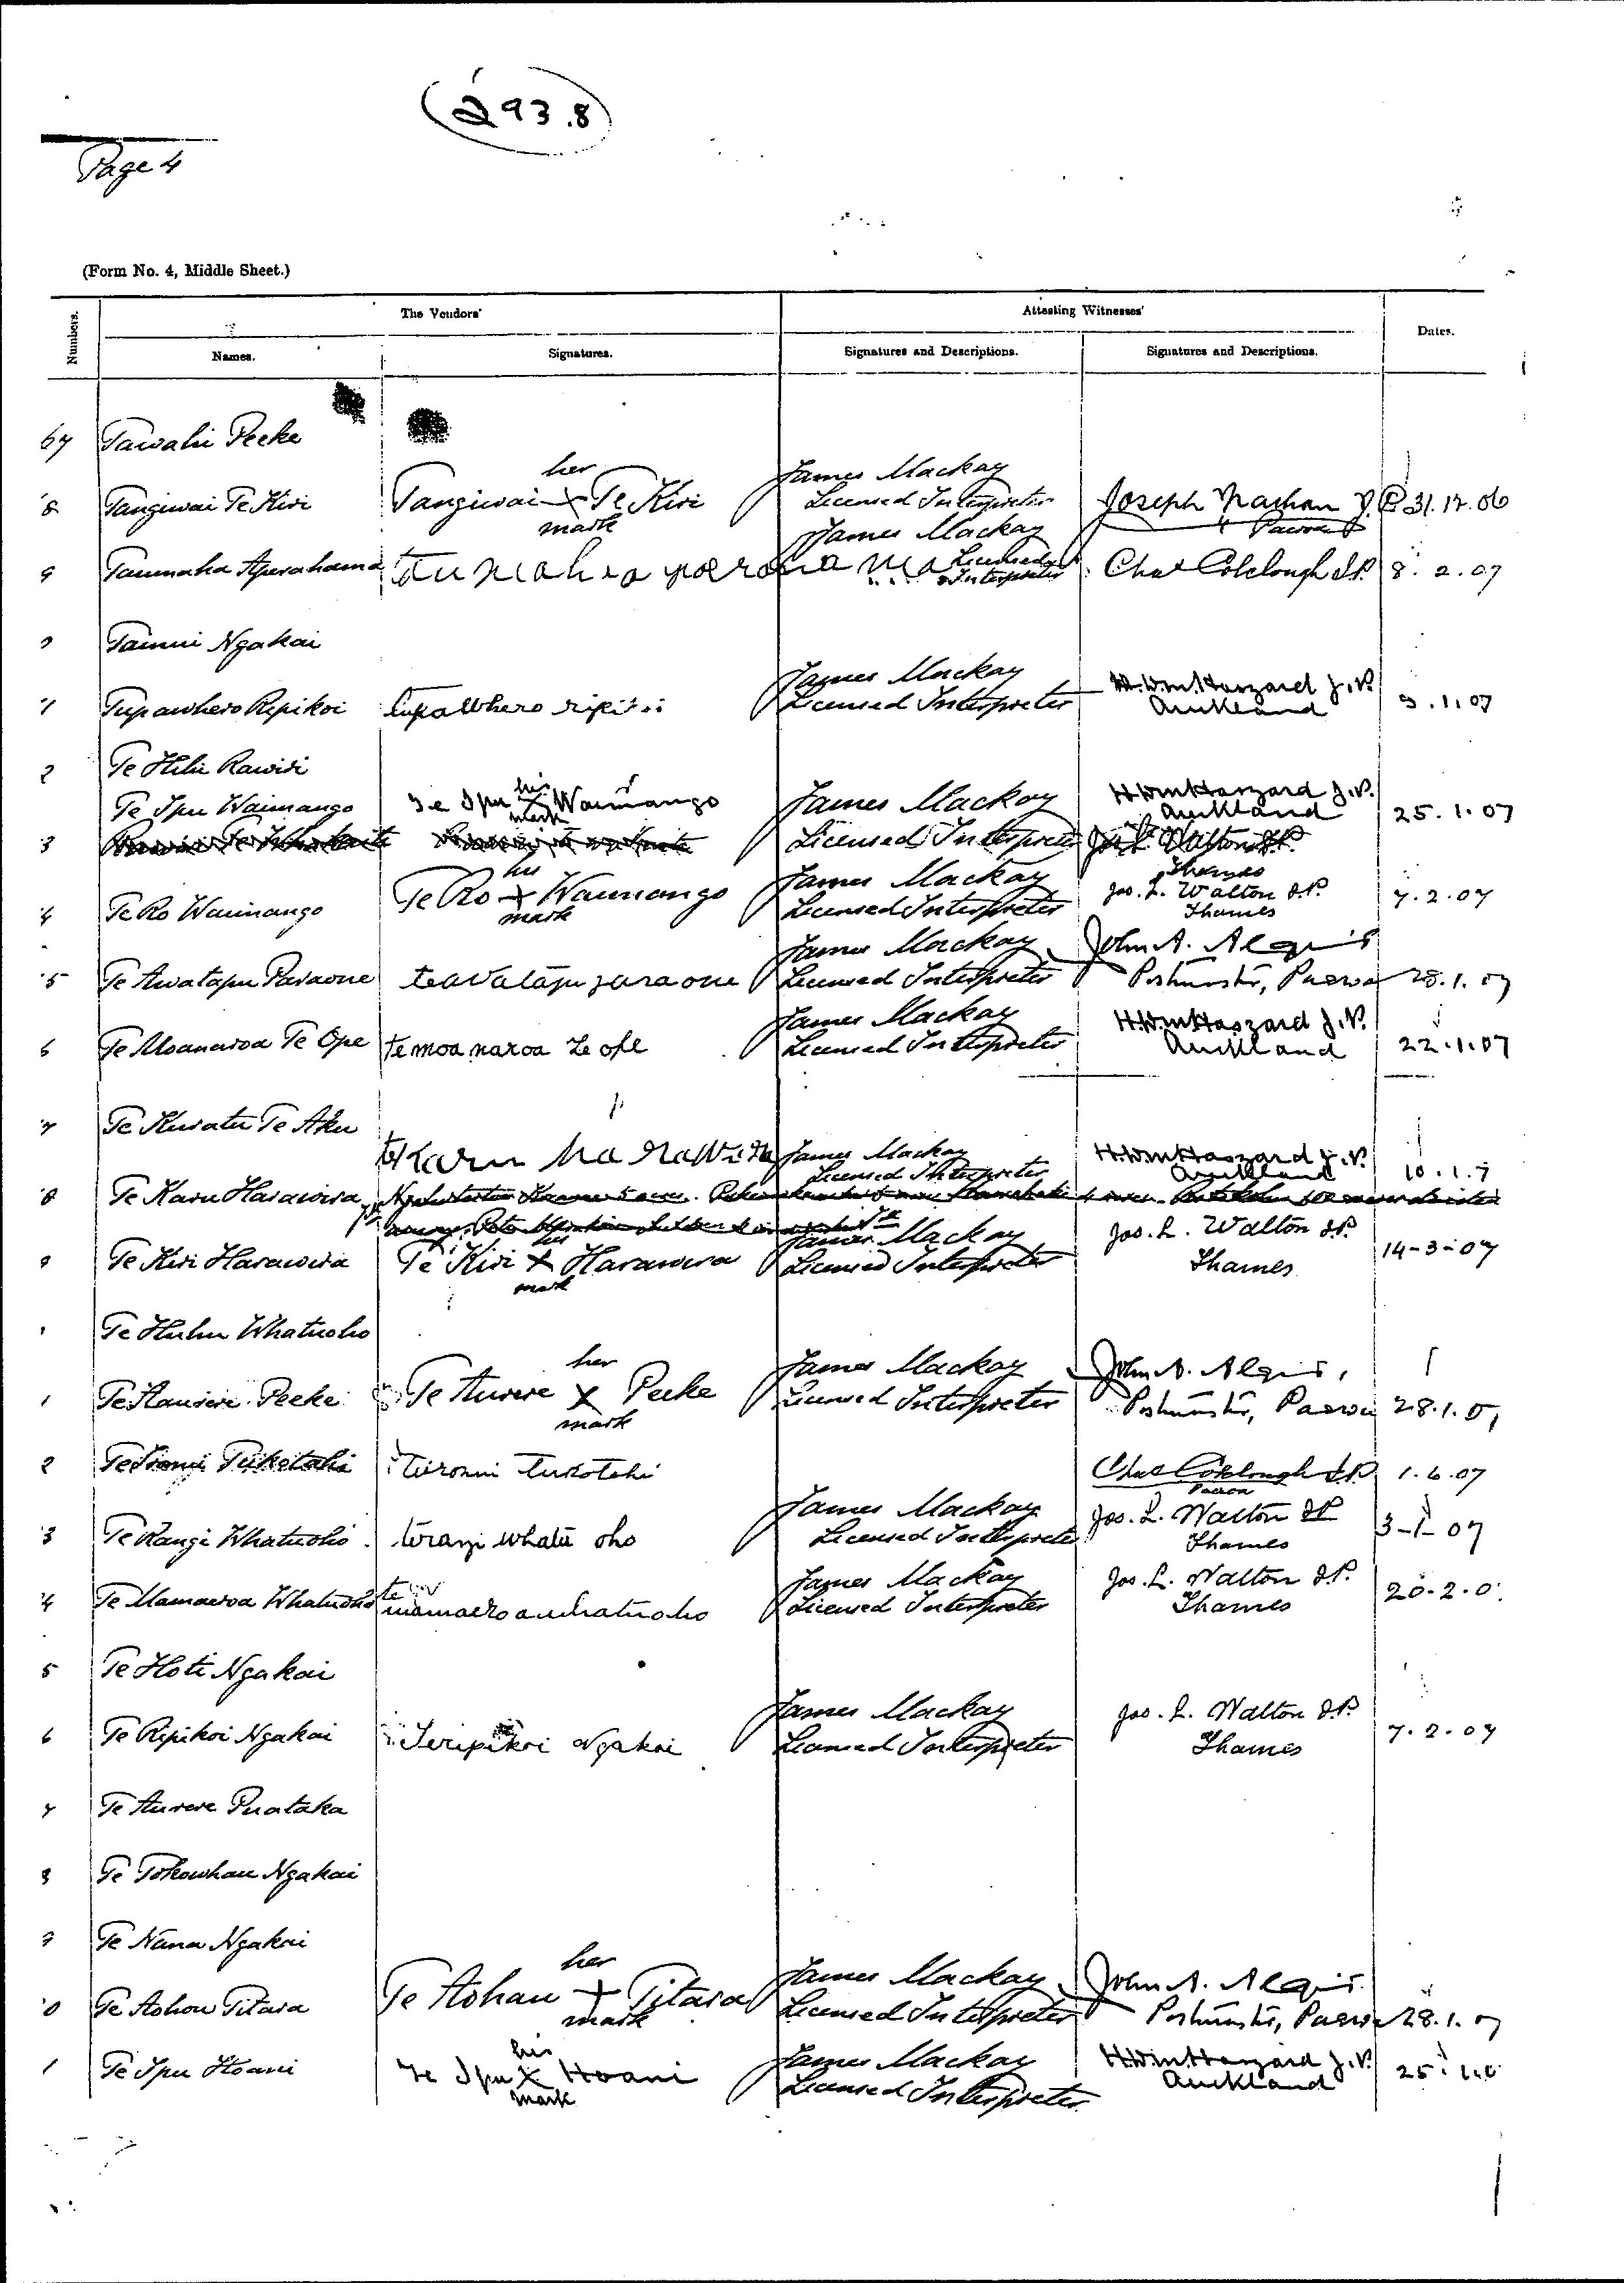 293.8
Page 4
(Form No. 4, Middle Sheet.)
Numbers. The Vendors' Attesting Witnesses' Dates.
Names. Signatures. Signatures and Descriptions. Signatures and Descriptions.
67 Tawahi Peeke
8 Tangiwai Te Kiri Tangiwai her x mark Te Kiri James Mackay Licensed Interpreter Joseph Nathan J.P. Paeroa 31.12.06
9 Taumaha Aperahama James Mackay Licensed Interpreter Chas Coleclough J.P. 8.2.07
Tainui Ngakai
1 Tupawhero Ripikoi tupawhero ripikoi James Mackay Licensed Interpreter H. Wm Haszard J.P. Auckland 9.1.07
2 Te Hihi Rawiri
Te Ipu Waimango Te Ipu his x mark Waimango James Mackay H Wm Haszard J.P. Auckland 25.1.07
3 Licensed Interpreter Jos. L. Walton J.P. Thames
4 Te Ro Waimango Te Ro his + mark Waimango James Mackay Licensed Interpreter Jos. L. Walton J.P. Thames 7.2.07
5 Te Awatapu Paraone teavatapu paraone James Mackay Licensed Interpreter John A. Postmaster, Paeroa 28.1.07
6 Te Moanaroa Te Ope te moa naroa te ope James Mackay Licensed Interpreter H Wm Haszard J.P. Auckland 22.1.07
7 Te Kuratu Te Aku
8 Te Karu Harawira te Karu Harawira James Mackay Licensed Interpreter H Wm Haszard J.P. Auckland 10.1.7
9 Te Kiri Harawira Te Kiri his x mark Harawira James Mackay Licensed Interpreter Jos. L. Walton J.P. Thames 14-3-07
Te Huhu Whatuoho
1 Te Haurere Peeke Te Aurere her x mark Peeke James Mackay Licensed Interpreter John A. Postmaster, Paeroa 28.1.07
2 Tuketahi Chas Coleclough J.P. Paeroa 1.6.07
3 Te Rangi Whatuoho terangi whatu oho James Mackay Licensed Interpreter Jos. L. Walton J.P. Thames 3-1-07
4 Te Mamaeroa Whatuoho te mamaeroa whatuoho James Mackay Licensed Interpreter Jos. L. Walton J.P. Thames 20.2.0
5 Te Hoti Ngakai
6 Te Ripikoi Ngakai Teripikoi Ngakai James Mackay Licensed Interpreter Jos. L. Walton J.P. Thames 7.2.07
7 Te Aurere Puataka
8 Te Tokowhau Ngakai
9 Te Nana Ngakai
0 Te Aohou Titara Te Aohau her + mark Titara James Mackay Licensed Interpreter John A. Postmaster, Paeroa 28.1.07
1 Te Ipu Hoani Te Ipu his x mark Hoani James Mackay Licensed Interpreter H Wm Haszard J.P. Auckland 25.1.0